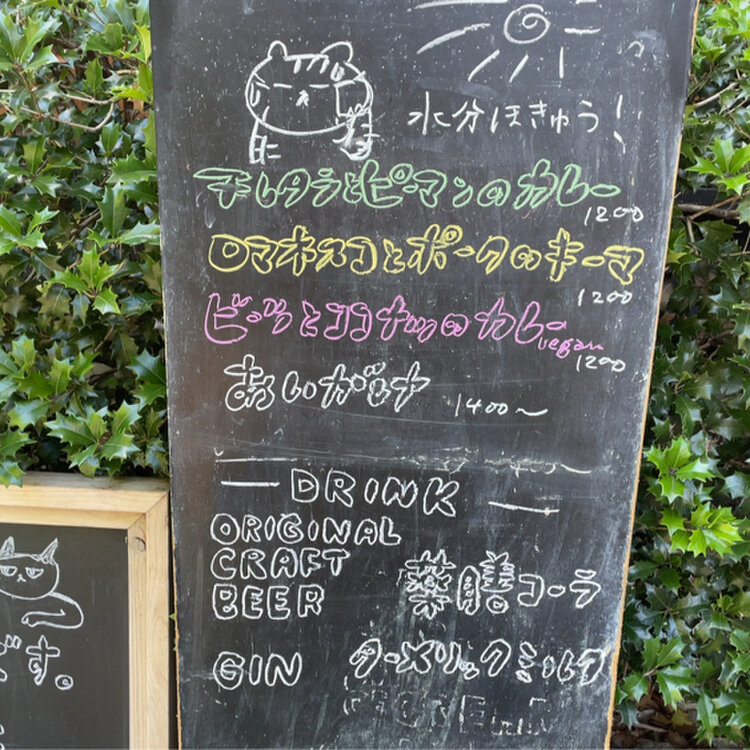 水分ほきゅう!
干しタラとピーマンのカレー
1200
ロマネスコとポークのキーマ
1200
ビーツとココナッツのカレー
vegan
1200
あいがけ 1400～
— DRINK —
ORIGINAL
CRAFT
BEER
薬膳コーラ
GIN
ターメリックミルク
です。